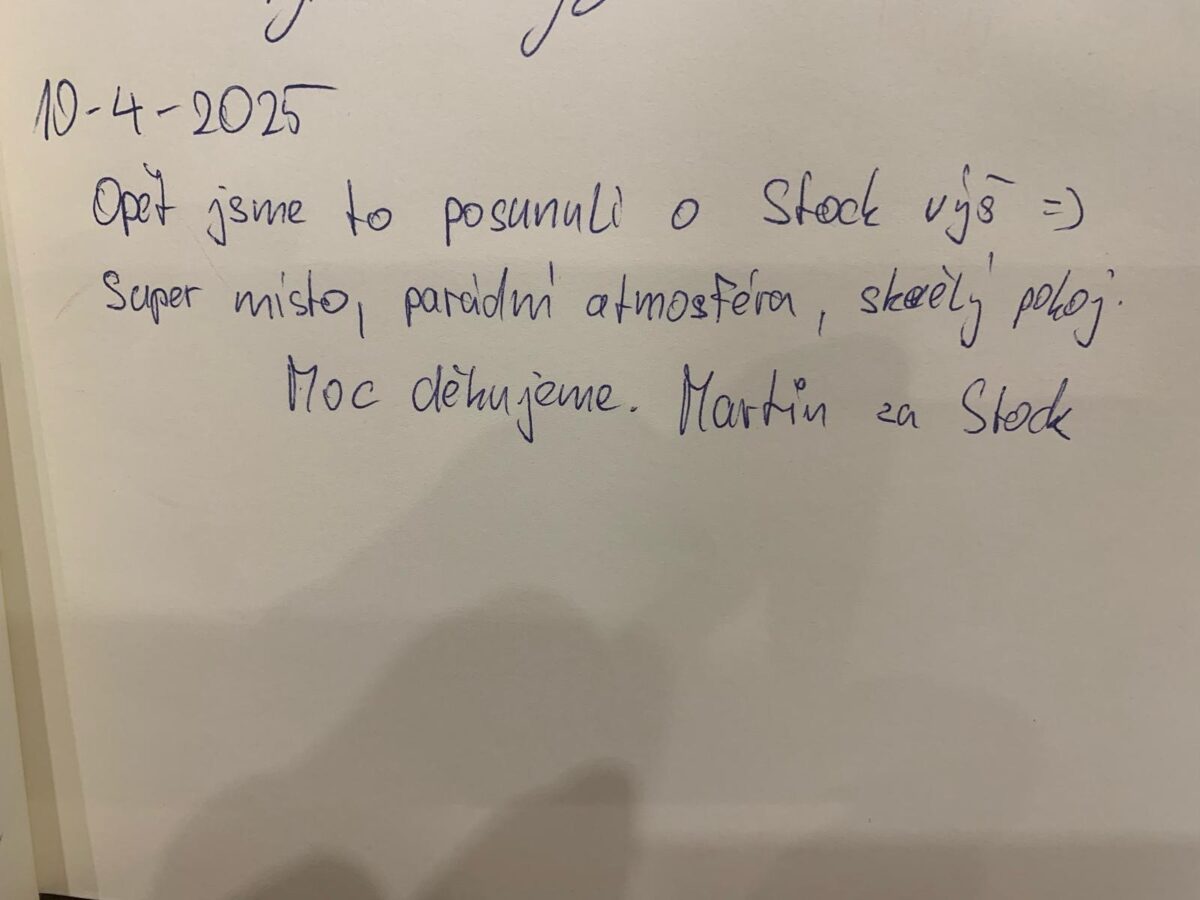 10-4-2025
Opět jsme to posunuli o Stock výš =)
Super místo, parádní atmosféra, skvělý pokoj.
Moc děkujeme. Martin za Stock